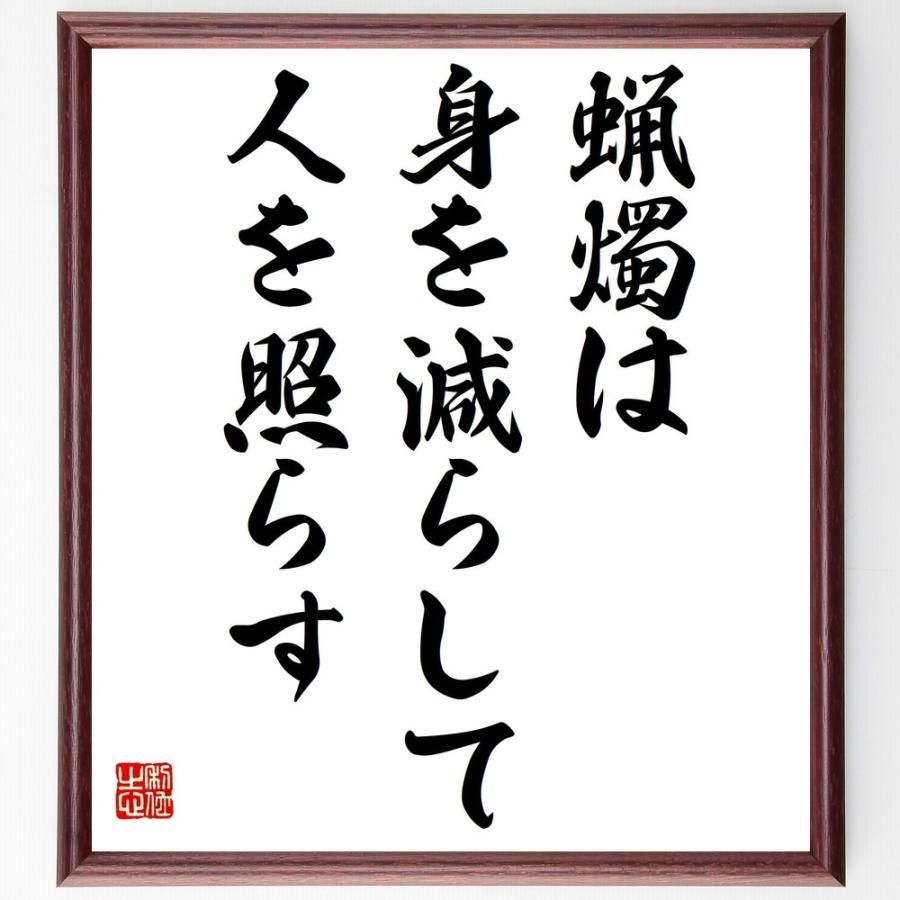 蝋燭は
身を減らして
人を照らす